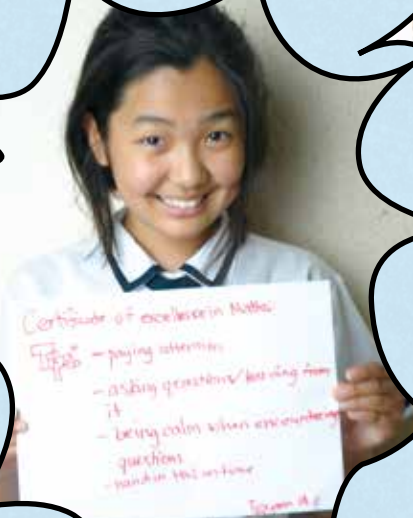 Certificate of excellence in Maths:
Tips - paying attention
- asking questions/learning from
it
- being calm when encountering
questions
- hand in HW on-time